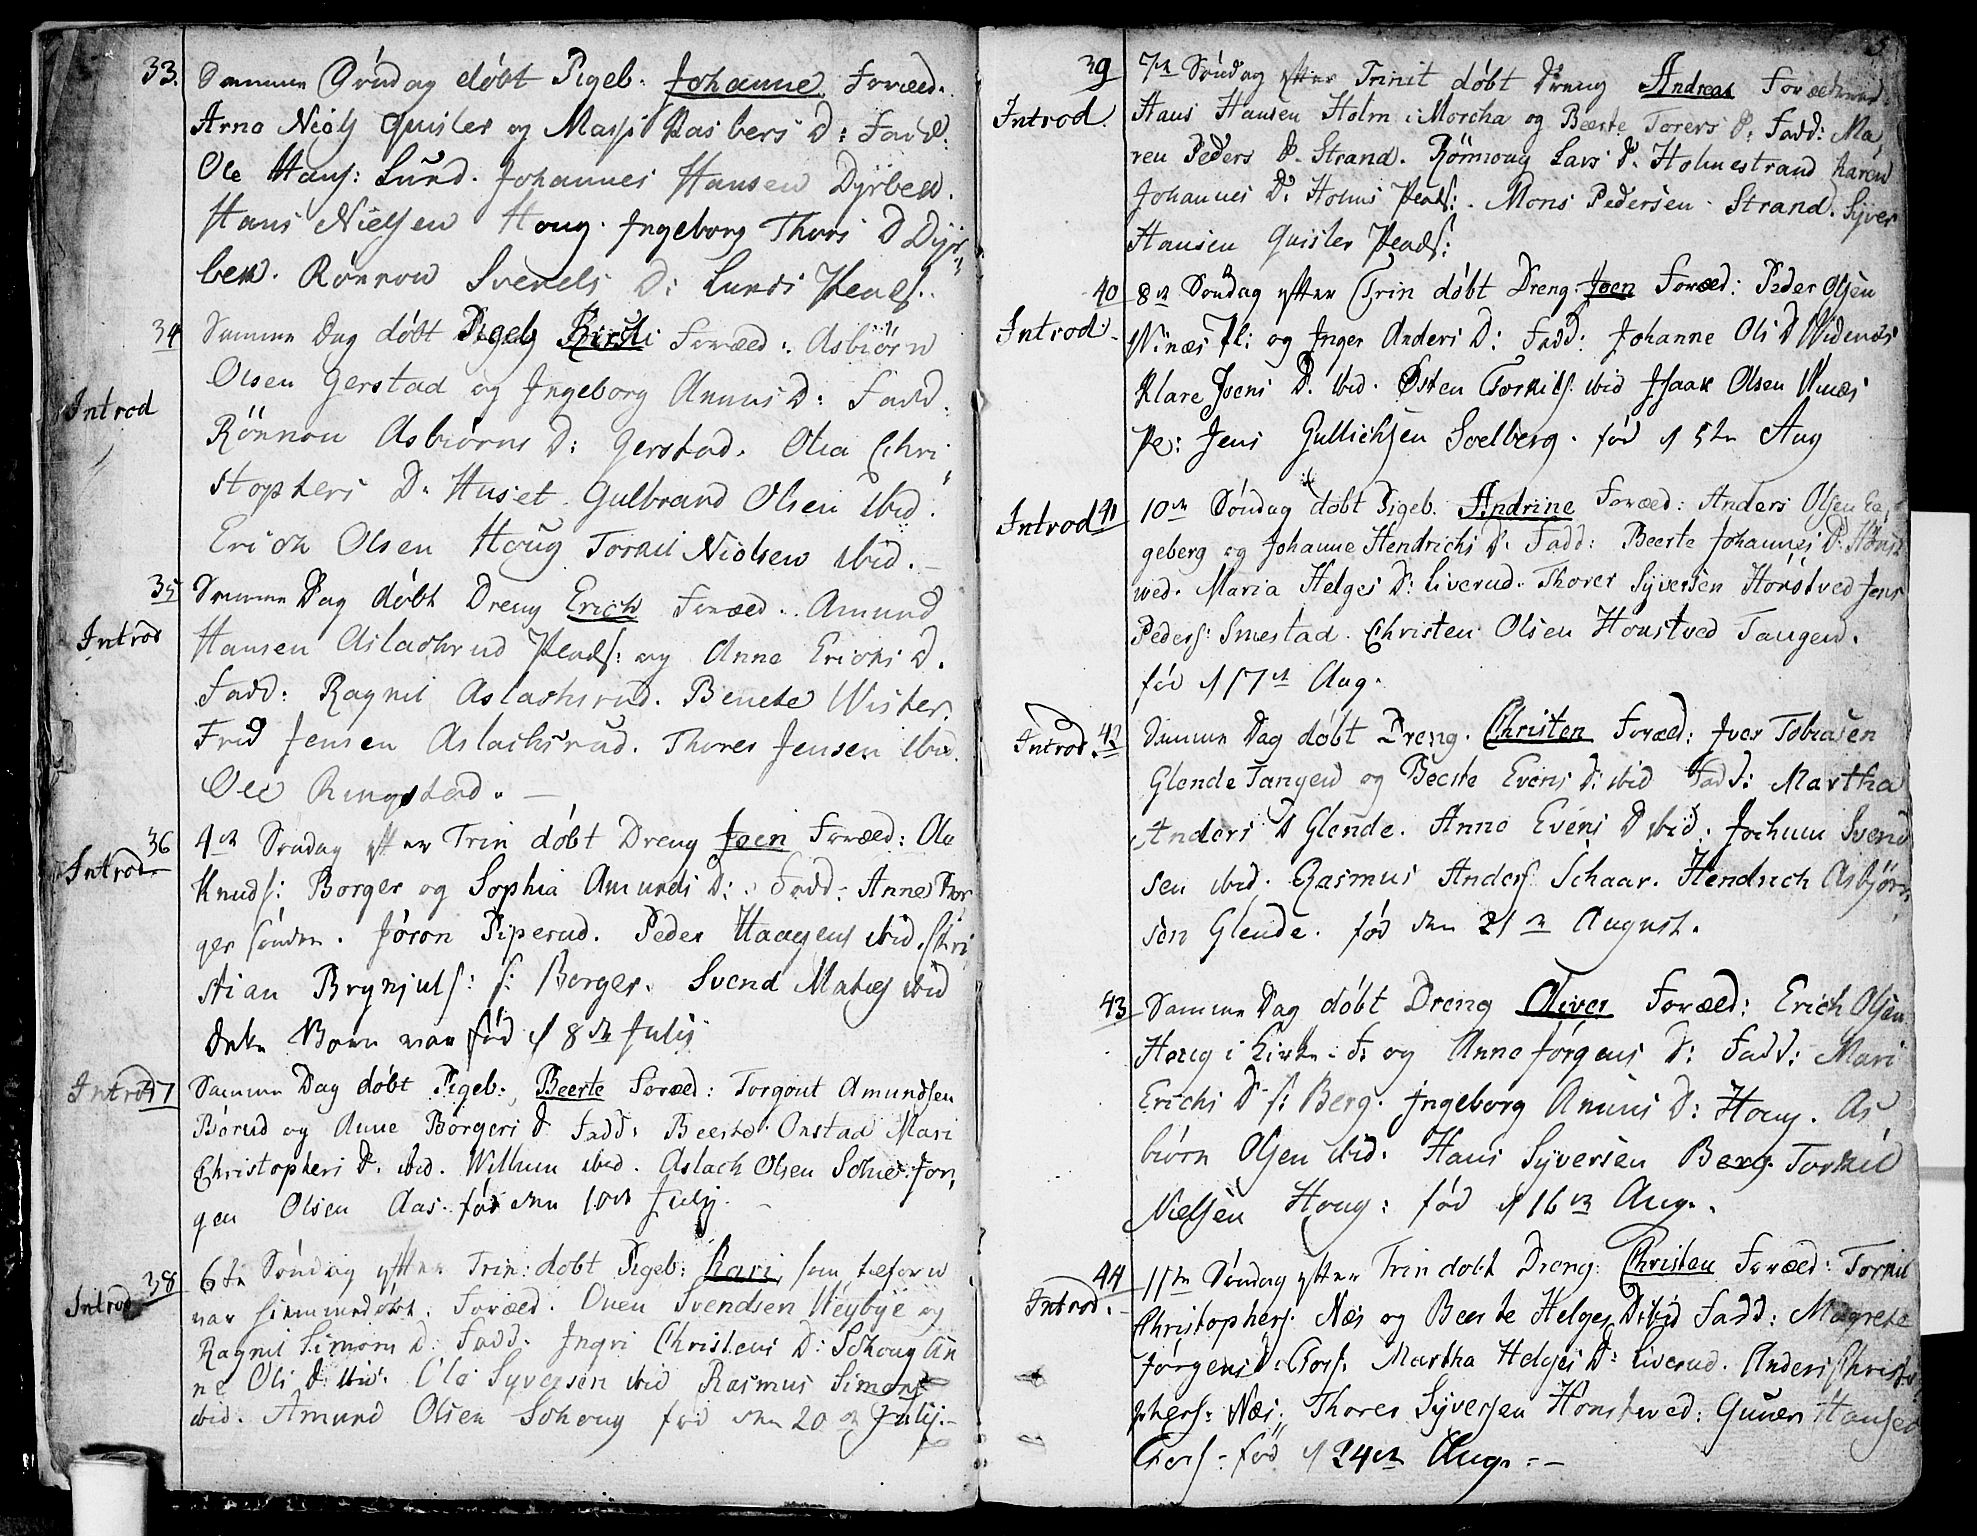 33. Samme Söndag döbt Pigeb. Johanne Foræld.
Arne Niels Quisler og D: Fadd:
Ole Hans: Lund. Johannes Hansen Dyrbek.
Hans Nielsen Houg. Ingeborg Thors D Dyr„
bek. Rönnou Svends D: Lunds Pladſ.
34 Samme Dag döbt Pigeb Kirsti Foræld: Asbiörn
Introd
Olsen Gerstad og Ingeborg Amunds D: Fadd.
Rönnou Asbiörns D: Gerstad. Olia Chri„
stophers D. Huset. Gulbrand Olsen ibid.
Erich Olsen Houg Torkil Nielsen ibid.
35 Samme Dag döbt Dreng Erich Foræld. Amund
Introd
Hansen Aslachsrud Pladſ: og Anne Erichs D.
Fadd: Ragnil Aslachsrud. Benete Wister.
Fred Jensen Aslachsrud. Thores Jensen ibid.
Ole Ringstad.
36 4de Söndag efter Trin döbt Dreng Joen Foræld: Ole
Introd
Knudſ: Borger og Sophia Amunds D: Fadd: Anne Thor
ger sönden. Jöron Piperud. Peder Haagens ibid. Chri
stian Brynjulſ: Borger. Svend Mates ibid
dette Barn var föd d 8de Julii
Introd 37 Samme Dag döbt Pigeb. Beerte Foræld: Torgout Amundsen
Börud og Anne Börgers D Fadd: Beerte Onstad Mari
Christophers D. ibid. Willum ibid. Aslach Olsen Schie. Jör„
gen Olsen Aas. föd den 10de Julij
38 6te Söndag efter Trin: döbt Pigeb: Kari som tilforn
Introd
var hiemmedöbt. Foræld. Ouen Svendsen Weybye og
Ragnil Simons D. Fadd: Ingri Christens D: Schoug An
ne Ols D. ibid. Ole Syversen ibid Rasmus Simens
ibid. Amund Olsen Schoug föd den 20de Julij.
39 7de Söndag efter Trinit döbt Dreng Andreas Forældrene
Introd.
Hans Hansen Holm i Morcha og Beerte Torers D: Fadd: Ma„
ren Peders D. Strand. Rönnoug Lars D. Holmestrand Karen
Johannes D: Holms Pladſ. Mons Pedersen Strand. Syver
Hansen Quisler Pladſ:
40 8de Söndag efter Trin döbt Dreng Joen Foræld: Peder Olsen
Introd.
Winæs Pl: og Inger Anders D: Fadd: Johanne Ols D Widenæs
Klare Joens D. ibid. Østen Torkilſ. ibid Isaak Olsen Vinæs
Pl: Jens Gullichsen Soelberg. föd d 5te Aug
Introd 41 10de Söndag döbt Pigeb. Andrine Foræld: Anders Olsen En„
geberg og Johanne Hendrichs D. Fadd: Beerte Johannes D: Hönst
wed. Maria Helges D: Liverud. Thores Syversen Hönstved Jens
Peders: Smestad. Christen Olsen Honstved Tangen.
föd d 17de Aug.
Introd. 42 Samme Dag döbt Dreng. Christen Foræld: Iver Tobiasen
Glende Tangen og Beerte Evens D: ibid Fadd: Martha
Anders D Glende. Anne Evens D ibid. Jochum Svend
sen ibid. Rasmus Andersſ Schaar. Hendrich Asbjörn„
sen Glende. föd den 21de August.
43 Samme Dag döbt Dreng Oliver Foræld: Erich Olsen
Houg i Kirke-F. og Anne Jörgens D: Fadd: Mari
Erichs D. Berg. Ingeborg Anuns D: Houg. As„
biörn Olsen ibid. Hans Syversen Berg. Torkil
Nielsen Houg: föd d 16de Aug.
44 11te Söndag efter Trin döbt Dreng. Christen Foræld: Torkil
Introd.
Christophersſ. Næs og Beerte Helges D. ibid Fadd: Magrete
Jörgens D: Torſ. Martha Helges D: Liverud. Anders Christo
phersſ: Næs. Thores Syversen Hönstwed: Guner Hansen
Torſ. föd d 24de Aug.